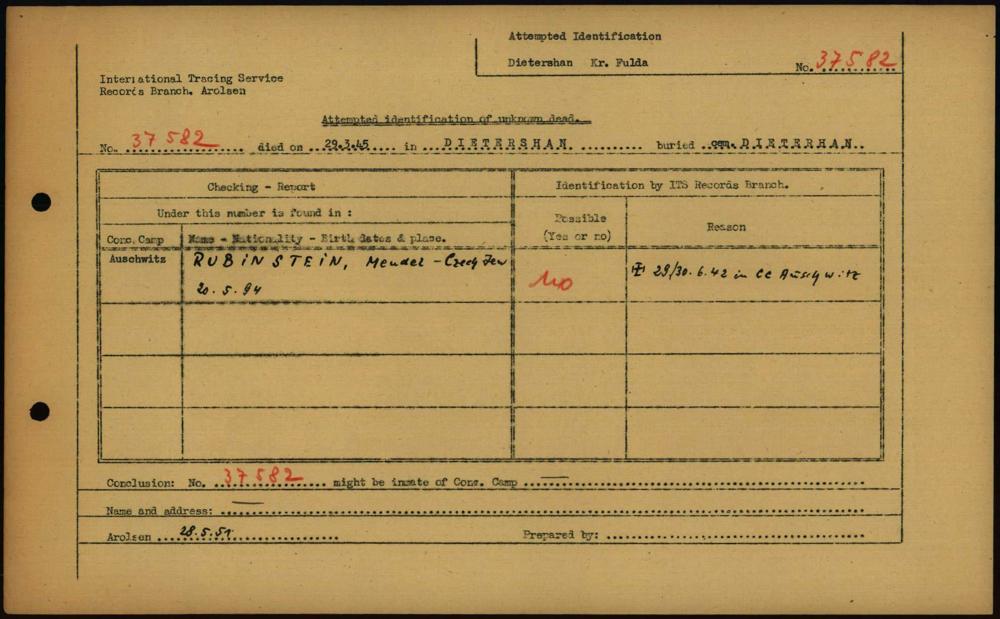 Attempted Identification
Dietershan Kr. Fulda
No. 37582
International Tracing Service
Records Branch. Arolsen
Attempted identification of unknown dead.
No. 37 582 died on 29.3.45 in DIETERSHAN. buried cem. DIETERHAN.
Checking - Report
Identification by ITS Records Branch.
Under this number is found in :
Possible
(Yes or no)
Reason
Conc. Camp
Name - Nationality - Birth dates & place.
Auschwitz
RUBINSTEIN, Mendel - Czech Jew
20.5.94
no
29/30.6.42 in CC Auschwitz
Conclusion: No. 37582 might be inmate of Conc. Camp —
Name and address: —
Arolsen 28.5.51
Prepared by: